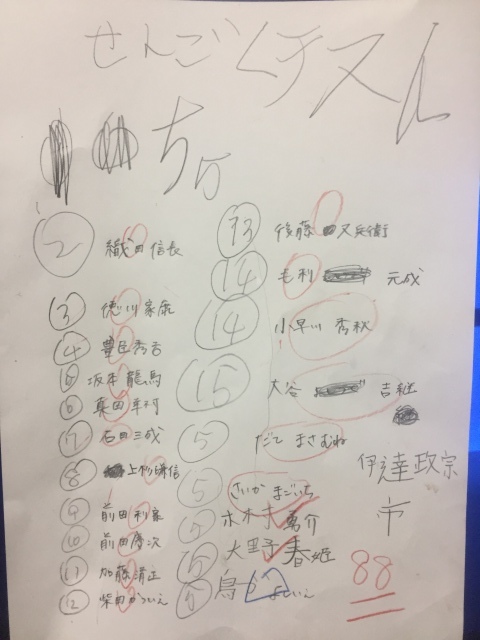 せんごくテスト
② 織田 信長
③ 徳川家康
④ 豊臣秀吉
坂本龍馬
⑥ 真田幸村
⑦ 石田三成
⑧ 上杉謙信
⑨ 前田利家
⑩ 前田慶次
⑪ 加藤清正
⑫ 柴田かついえ
後藤 又兵衛
⑭ 毛利 元成
⑭ 小早川 秀秋
⑮ 大谷 吉継
⑤ だて まさむね
伊達政宗
⑤ さいか まごいち
市
勇介
春姫
88